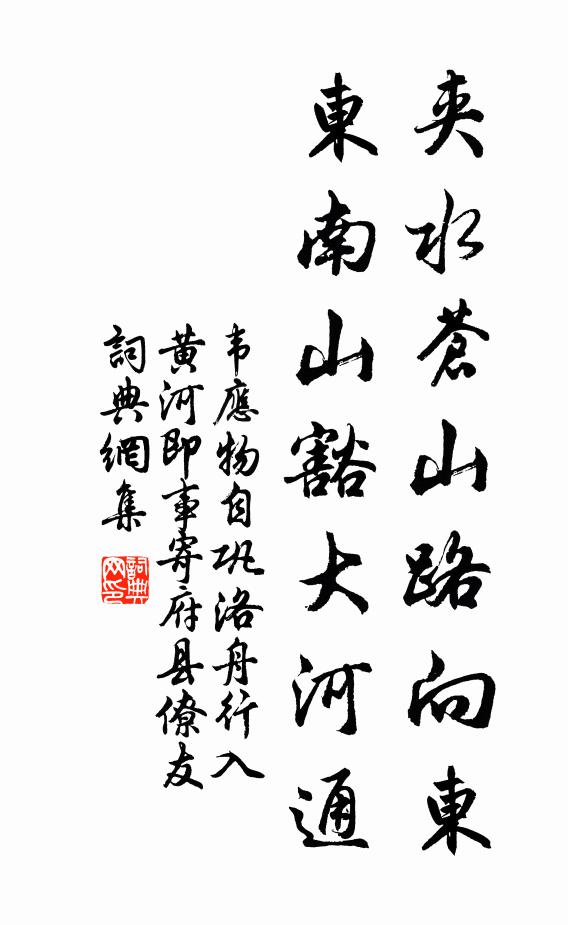 夹水蒼山路向東
東南山豁大河通
韦應物自巩洛舟行入
黄河即事寄府县僚友
詞典網集
詞典
网印